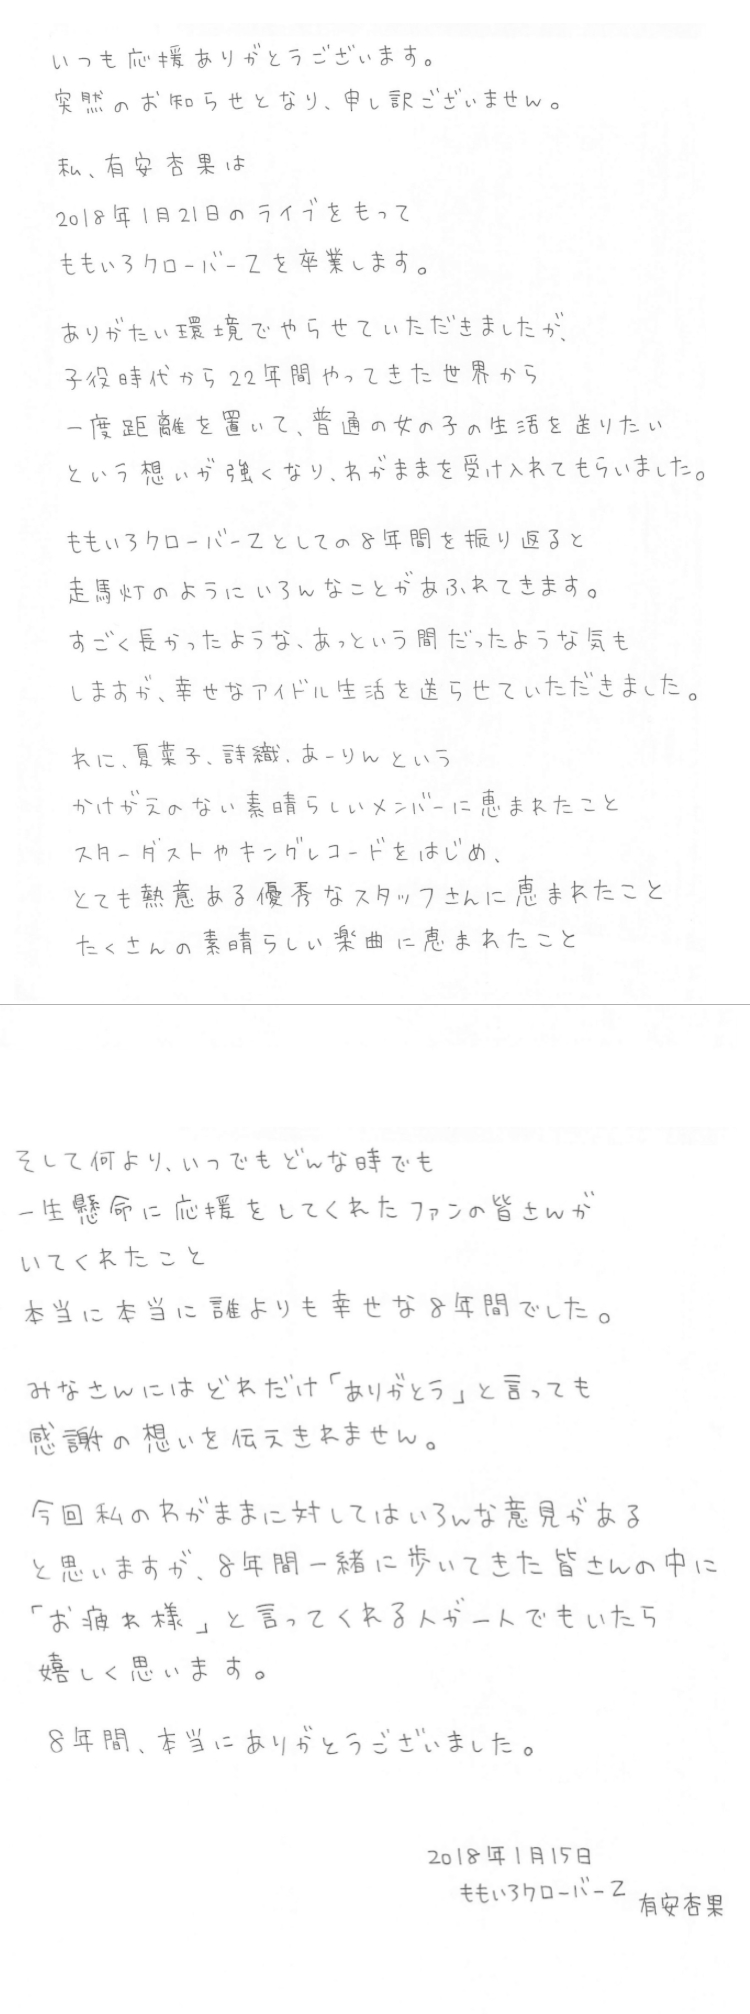 いつも応援ありがとうございます。
突然のお知らせとなり、申し訳ございません。
私、有安杏果は
2018年1月21日のライブをもって
ももいろクローバーZを卒業します。
ありがたい環境でやらせていただきましたが、
子役時代から22年間やってきた世界から
一度距離を置いて、普通の女の子の生活を送りたい
という想いが強くなり、わがままを受け入れてもらいました。
ももいろクローバーZとしての8年間を振り返ると
走馬灯のようにいろんなことがあふれてきます。
すごく長かったような、あっという間だったような気も
しますが、幸せなアイドル生活を送らせていただきました。
れに、夏菜子、詩織、あーりんという
かけがえのない素晴らしいメンバーに恵まれたこと
スターダストやキングレコードをはじめ、
とても熱意ある優秀なスタッフさんに恵まれたこと
たくさんの素晴らしい楽曲に恵まれたこと
そして何より、いつでもどんな時でも
一生懸命に応援をしてくれたファンの皆さんが
いてくれたこと
本当に本当に誰よりも幸せな8年間でした。
みなさんにはどれだけ「ありがとう」と言っても
感謝の想いを伝えきれません。
今回私のわがままに対してはいろんな意見がある
と思いますが、8年間一緒に歩いてきた皆さんの中に
「お疲れ様」と言ってくれる人が一人でもいたら
嬉しく思います。
8年間、本当にありがとうございました。
2018年1月15日
ももいろクローバーZ 有安杏果